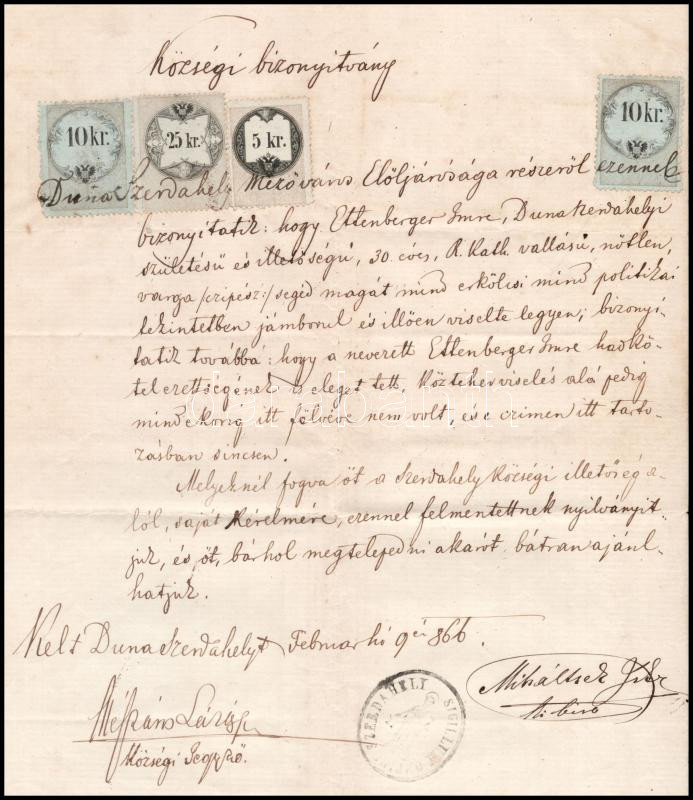 Községi bizonyitvány
10 kr. 25 kr. 5 kr. 10 kr.
Duna Szerdahely Mezőváros Elöljárósága részeről ezennek
bizonyitatik: hogy Ettenberger Imre, Dunaszerdahelyi
születésű és illetőségű, 30. éves, R. Kath. vallású, nőtlen,
varga /czipész:/ segéd magát mind erkölcsi mind politikai
tekintetben jámborul és illően viselte legyen; bizonyi-
tatik továbbá: hogy a nevezett Ettenberger Imre hadkö-
telezettségének is eleget tett, közteherviselés alá pedig
mindekorig itt fölvéve nem volt, és e czimen itt tarto-
zásban sincsen.
Melyeknél fogva őt a szerdahely községi illetőség a-
lól, saját kérelmére, ezennel felmentettnek nyilványit-
juk, és őt, bárhol megtelepedni akarót, bátran ajánl-
hatjuk.
Kelt Duna Szerdahelyt Februar hó 9én 866.
Lázár
községi Jegyző.
Miháltsek
SIGILLUM SZERDAHELI